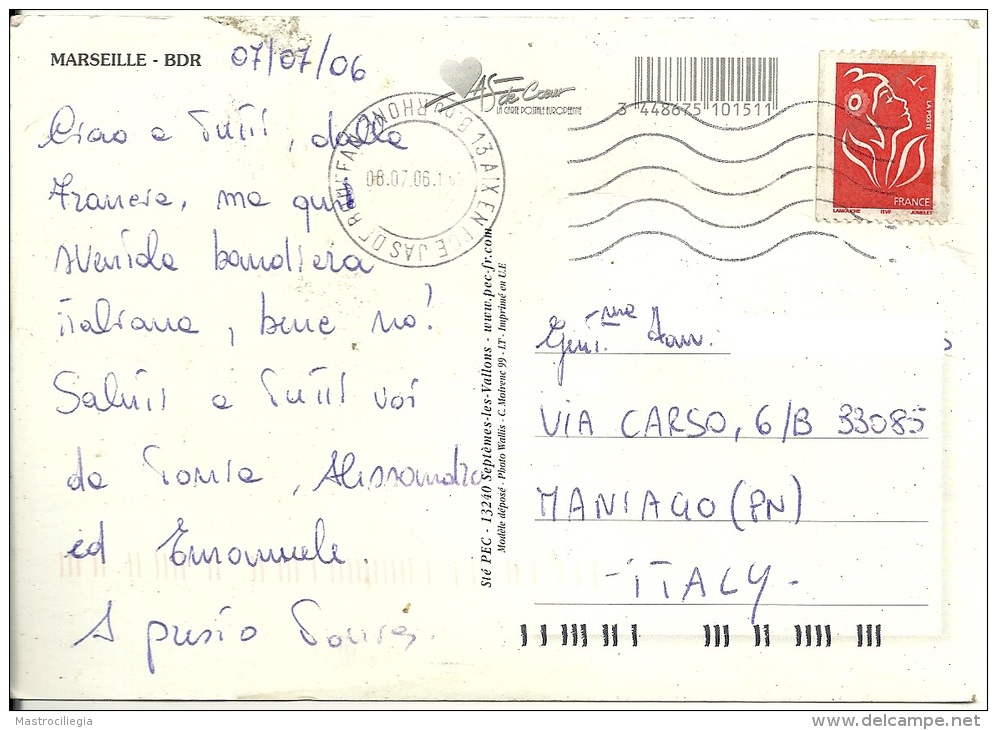 MARSEILLE - BDR 07/07/06
Ciao a tutti, dalla
Francia, ma qui
svenìda bandiera
italiana, bene no!
Saluti a tutti voi
da Tonia, Alessandra
ed Emanuele.
A presto
AS de Cœur
LA CARTE POSTALE EUROPEENNE
3 448675 101511
13 AIX EN PCE JAS DE BOUFFAN
B.D.RHONE
08.07.06
LA POSTE
FRANCE
LAMOUCHE ITVF JUMELET
Sté PEC - 13240 Septèmes-les-Vallons - www.pec-fr.com
Modèle déposé - Photo Wallis - C. Moirenc 99 - LT - Imprimé en U.E
Gent.ma Fam.
VIA CARSO, 6/B 33085
MANIAGO (PN)
- ITALY -
Mastrociliegia
delcampe.net